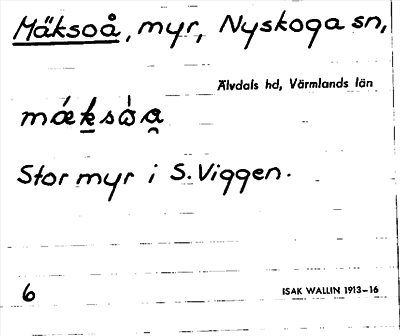 Mäksoå, myr, Nyskoga sn,
Älvdals hd, Värmlands län
mǽk̲sὼa̯
Stor myr i S. Viggen.
6
ISAK WALLIN 1913–16